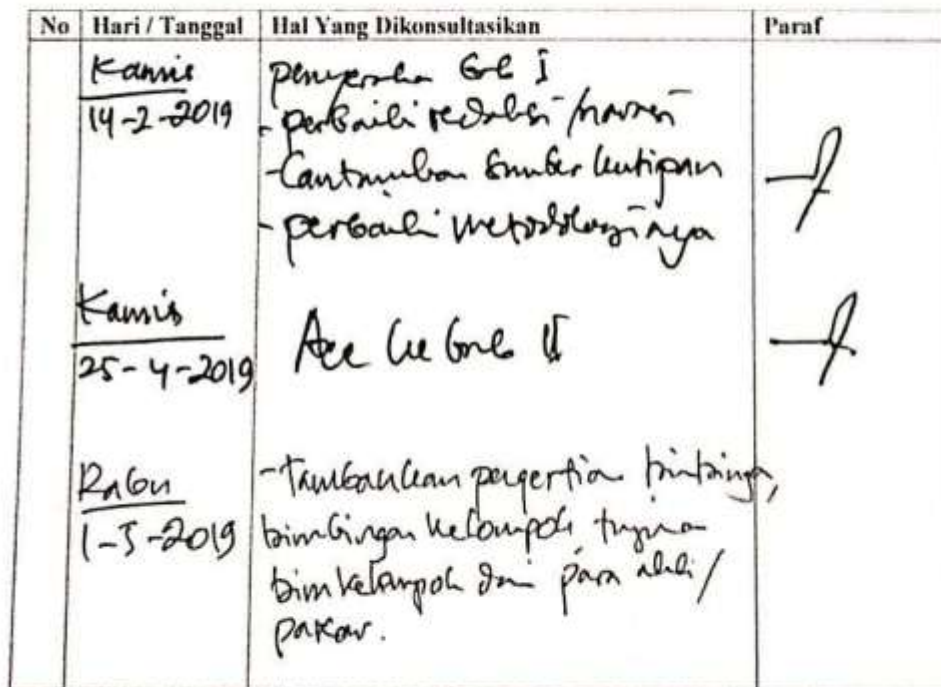 No Hari / Tanggal Hal Yang Dikonsultasikan Paraf
Kamis
14-2-2019
penyerahan Bab I
- perbaiki redaksi/narasi
- Cantumkan sumber kutipan
- perbaiki metodologinya
Kamis
25-4-2019
Acc ke bab II
Rabu
1-5-2019
- Tambahkan pengertian bimbingan,
bimbingan kelompok tujuan
bim kelompok dari para ahli/
pakar.